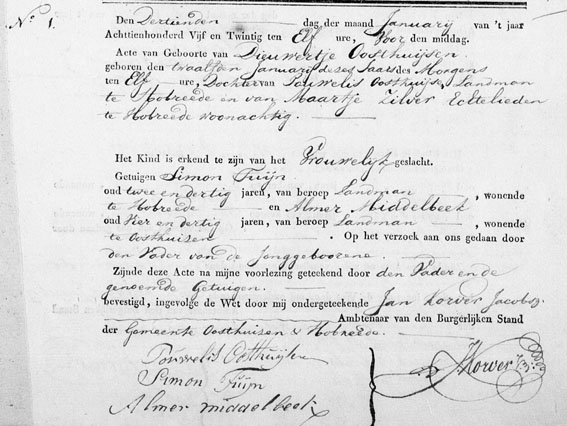 No. 1.
Den Dertienden dag, der maand January van 't jaar
Achtienhonderd Vijf en Twintig ten Elf ure, Voor den middag.
Acte van Geboorte van Dieuwertje Oosthuijsen.
geboren den twaalfden January dezes Jaars des Morgens
ten Elf ure, Dochter van Pouwelis Oosthuijsen, Landman
te Hobreede en van Maartje Zilver Echtelieden
te Hobreede woonachtig.
Het Kind is erkend te zijn van het Vrouwelijk geslacht.
Getuigen Simon Tuijn
oud twee en dertig jaren, van beroep Landman, wonende
te Hobreede en Almer Middelbeek
oud Vier en dertig jaren, van beroep Landman, wonende
te Oosthuisen. Op het verzoek aan ons gedaan door
den Vader van de Jonggeboorene.
Zijnde deze Acte na mijne voorlezing geteekend door den Vader en de
genoemde Getuigen.
bevestigd, ingevolge de Wet door mij ondergeteekende Jan Korver Jacobsz.
Ambtenaar van den Burgerlijken Stand
der Gemeente Oosthuisen & Hobreede.
Pouwelis Oosthuijsen
Simon Tuijn
JKorver
Almer middelbeek